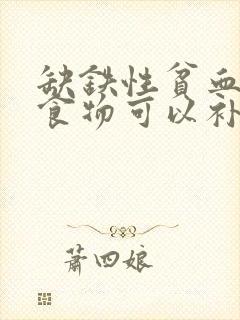 缺铁性贫血
食物可以补
萧四娘